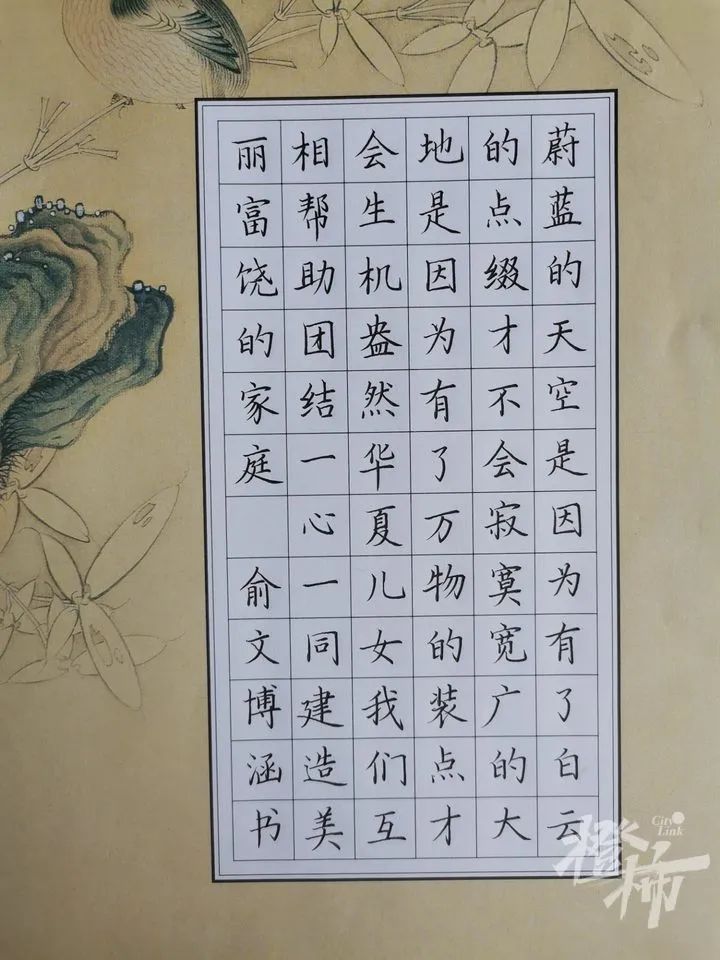 蔚蓝的天空是因为有了白云
的点缀才不会寂寞宽广的大
地是因为有了万物的装点才
会生机盎然华夏儿女我们互
相帮助团结一心一同建造美
丽富饶的家庭 俞文博涵书
City
Link
橙柿